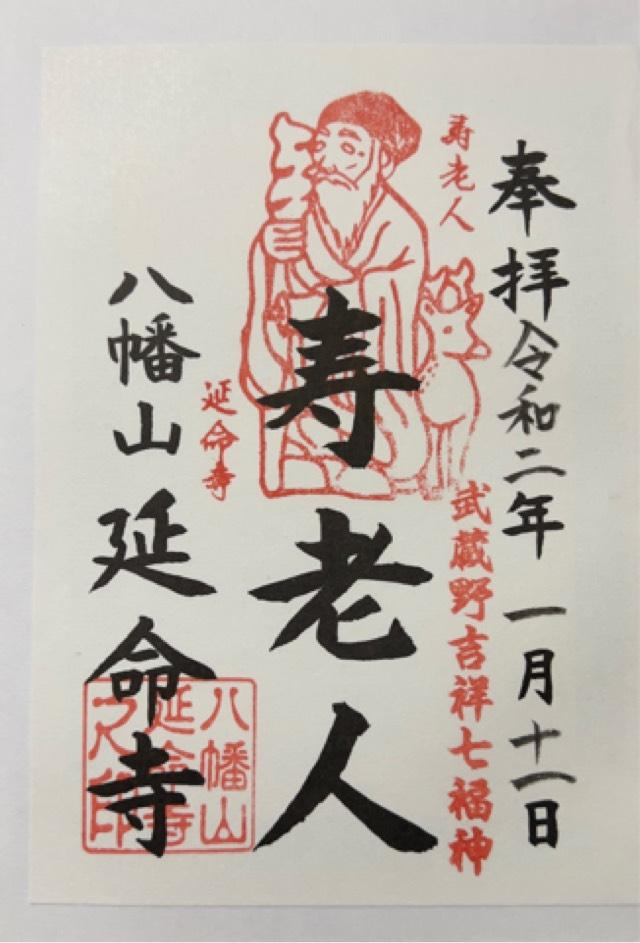 奉拝令和二年一月十一日
寿老人
武蔵野吉祥七福神
寿老人
延命寺
八幡山延命寺
八幡山
延命寺
之印